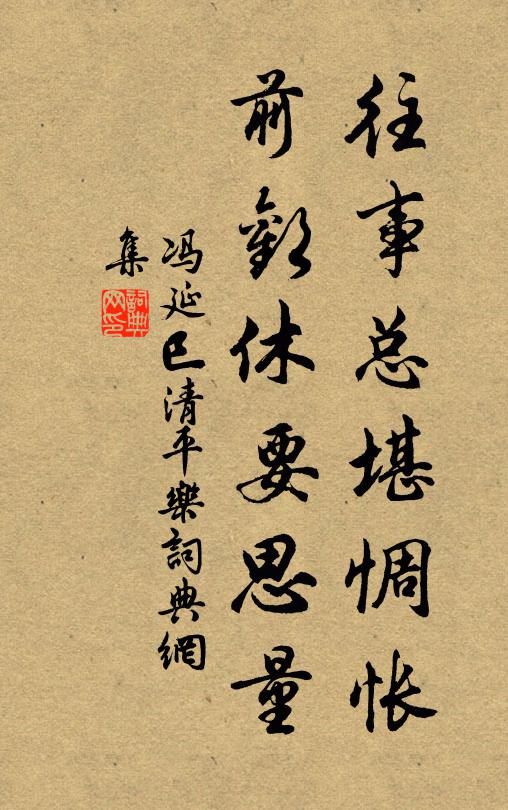 往事总堪惆怅
前歡休要思量
冯延巳清平樂詞典網
集
詞典网印